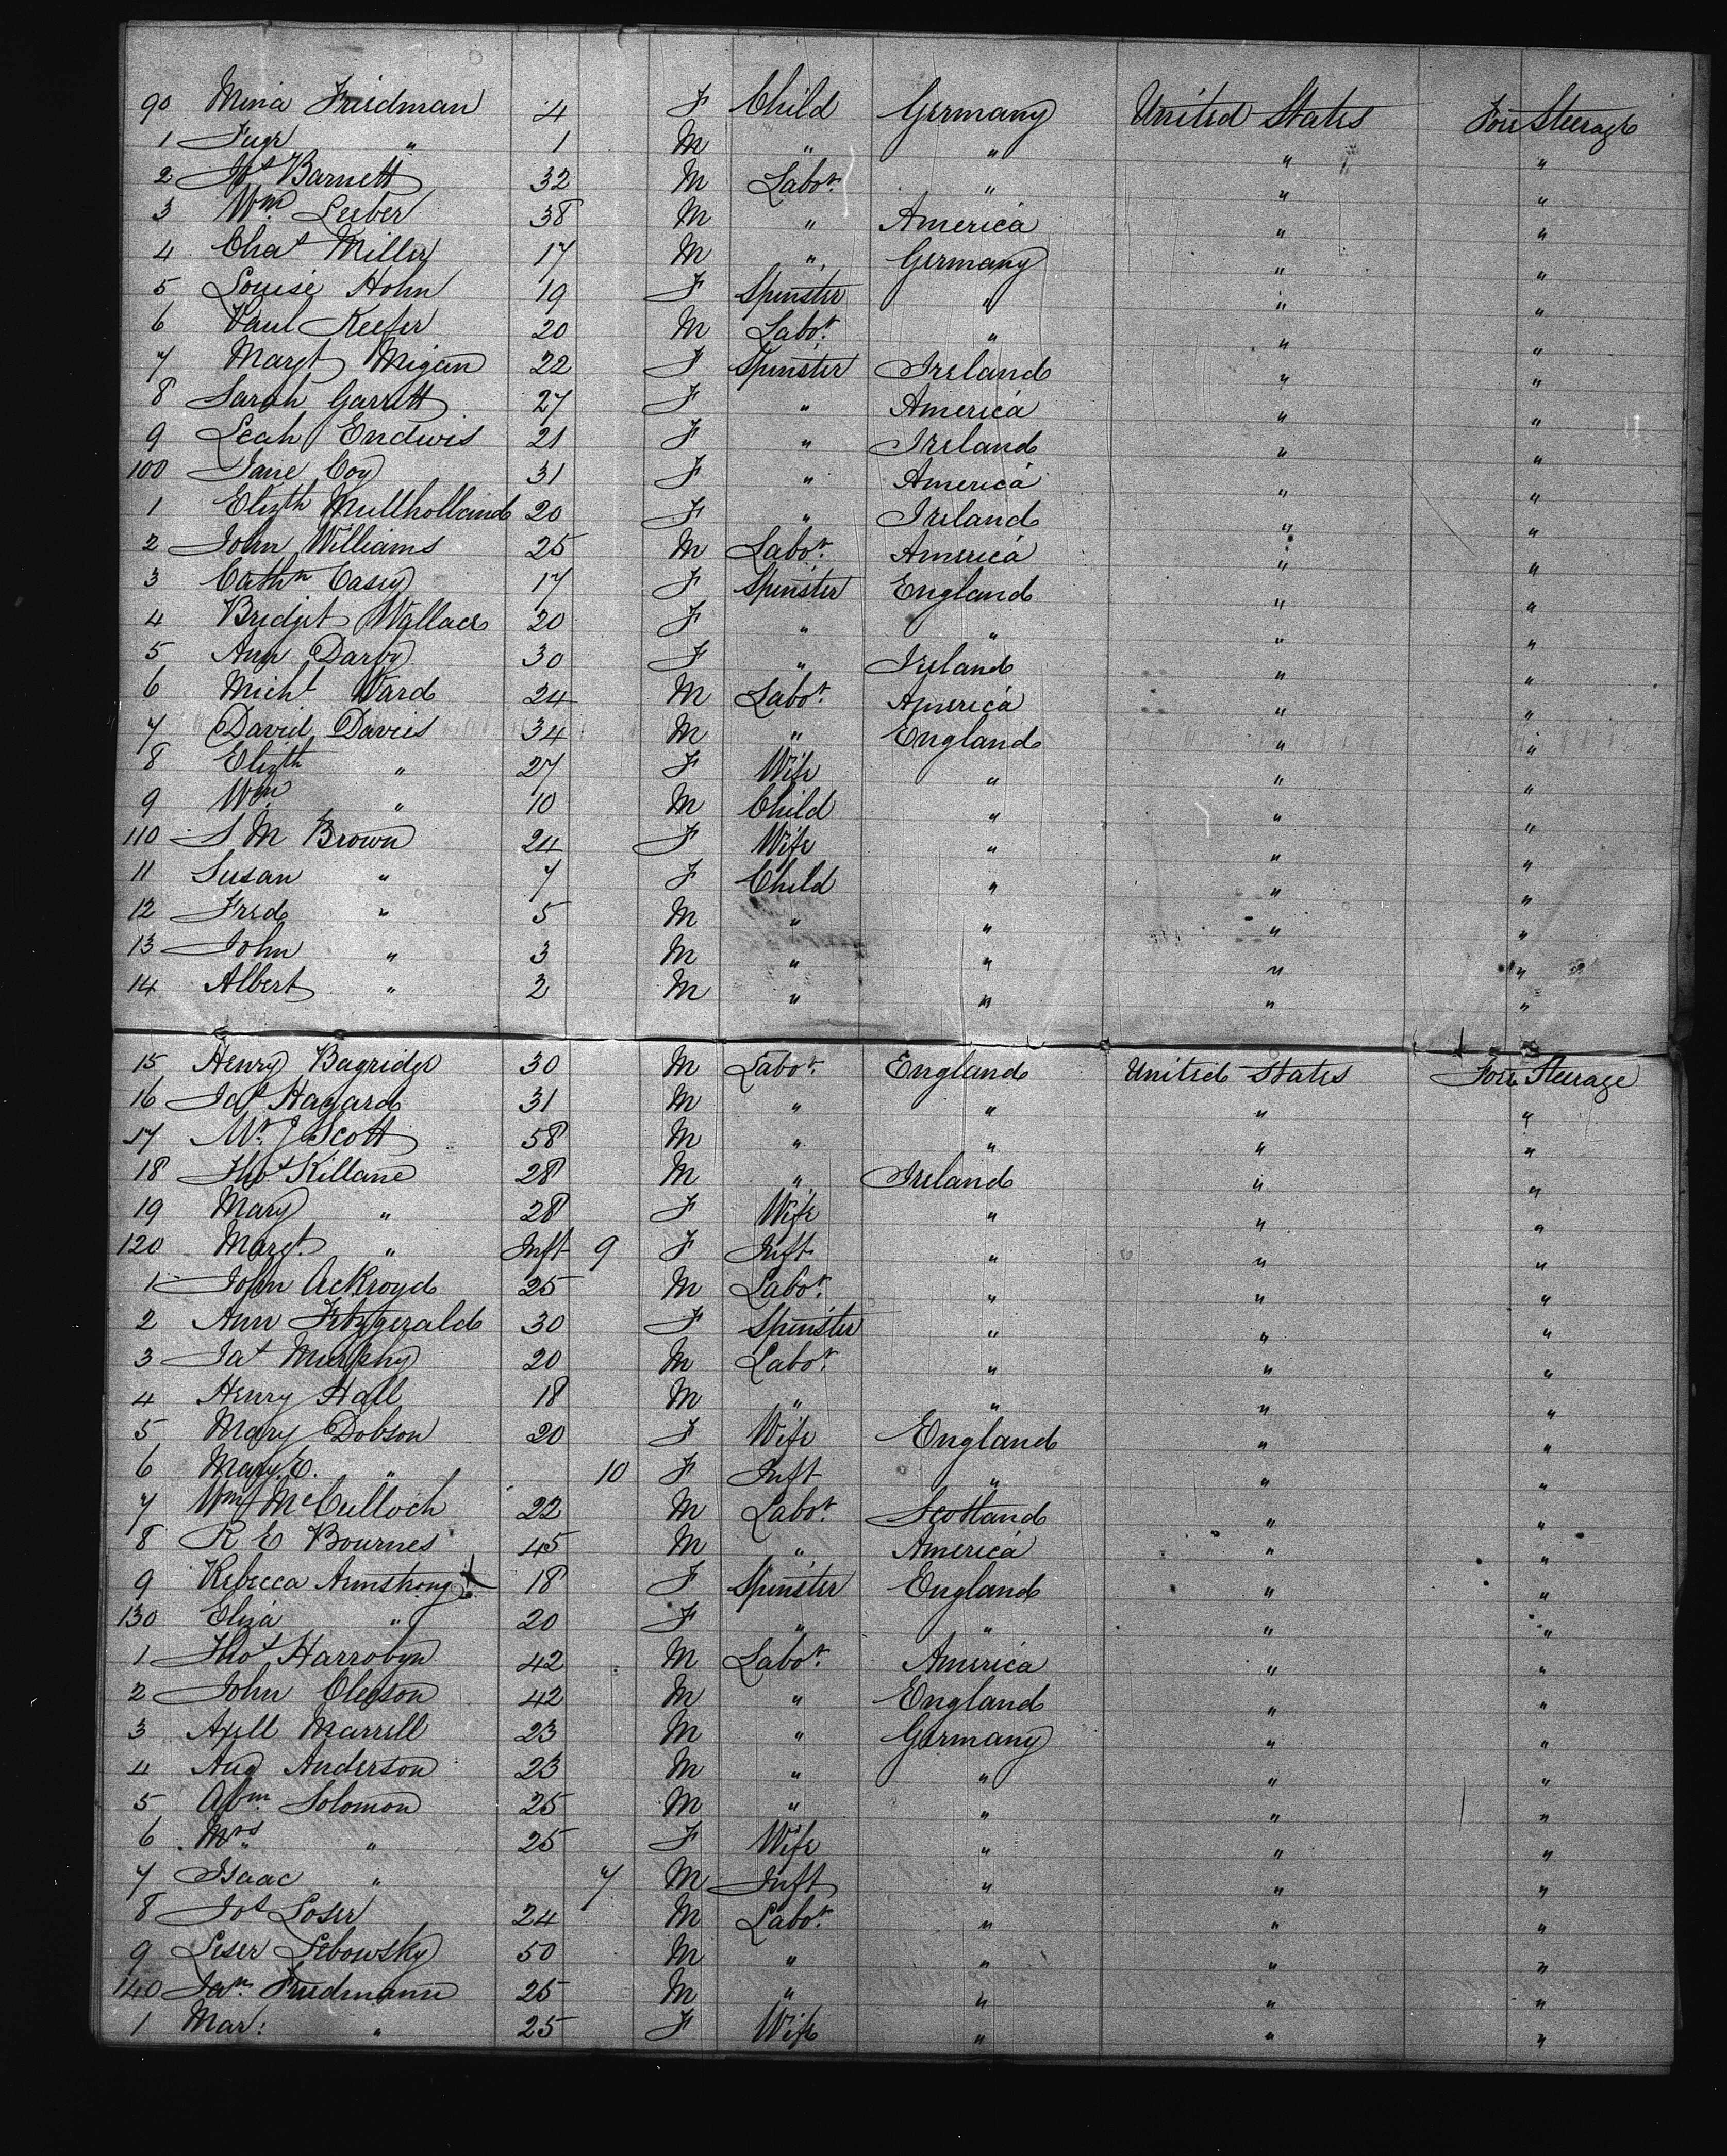 90 Mina Friedman 4 F Child Germany United States Fore Steerage
1 " 1 M " " " "
2 Barnett 32 M Labor. " " "
3 Wm. Leeber 38 M " America " "
4 Chas Miller 17 M " Germany " "
5 Louise Hohn 19 F Spinster " " "
6 Paul Keefer 20 M Labor. " " "
7 Margt Migan 22 F Spinster Ireland " "
8 Sarah Garrett 27 F " America " "
9 Leah Endwis 21 F " Ireland " "
100 Jane Coy 31 F " America " "
1 Elizth Mullholland 20 F " Ireland " "
2 John Williams 25 M Labor. America " "
3 Cathn Casey 17 F Spinster England " "
4 Bridget Wallace 20 F " " " "
5 Ann Darby 30 F " Ireland " "
6 Michl Ward 24 M Labor. America " "
7 David Davies 34 M " England " "
8 Elizth " 27 F Wife " " "
9 Wm " 10 M Child " " "
110 S M Brown 24 F Wife " " "
11 Susan " 7 F Child " " "
12 Fred " 5 M " " " "
13 John " 3 M " " " "
14 Albert " 2 M " " " "
15 Henry Bagridge 30 M Labor. England United States Fore Steerage
16 Jas Hagard 31 M " " " "
17 Mr. J Scott 58 M " " " "
18 Thos Killane 28 M " Ireland " "
19 Mary " 28 F Wife " " "
120 Margt. " Inft 9 F Inft " " "
1 John Ackroyd 25 M Labor. " " "
2 Ann Fitzgerald 30 F Spinster " " "
3 Jas Murphy 20 M Labor. " " "
4 Henry Hall 18 M " " " "
5 Mary Dobson 20 F Wife England " "
6 Mary E. " 10 F Inft " " "
7 Wm McCulloch 22 M Labor. Scotland " "
8 R E Bournes 45 M " America " "
9 Rebecca Armstrong 18 F Spinster England " "
130 Eliza " 20 F " " " "
1 Thos Harrobyn 42 M Labor. America " "
2 John Clegson 42 M " England " "
3 Axell Marrell 23 M " Germany " "
4 Aug Anderson 23 M " " " "
5 Abm. Solomon 25 M " " " "
6 Mrs " 25 F Wife " " "
7 Isaac " 7 M Inft " " "
8 Jos Loser 24 M Labor. " " "
9 Leser Lebowsky 50 M " " " "
140 Friedmann 25 M " " " "
1 Mar: " 25 F Wife " " "